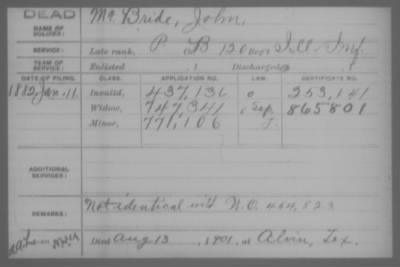 DEAD
NAME OF SOLDIER: McBride, John.
SERVICE: Late rank, P Co B 120 Regt Ill. Inf.
TERM OF SERVICE: Enlisted , 1 Discharged , 1
DATE OF FILING. CLASS. APPLICATION NO. LAW. CERTIFICATE NO.
1882, Jan. 11. Invalid, 437,136 253,141
Widow, 747,341 865801
Minor, 771,106
ADDITIONAL SERVICES:
REMARKS: Not identical with N.O. 464,523
Died Aug 13, 1901, at Alvin, Tex.